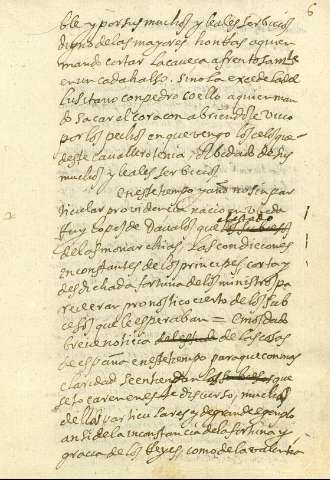 6
ble y por sus muchos y leales servicios
digno de las mayores honrras a quien
mando cortar la caveça afrentosam.te
en un cadahalso. Sino la excede la del
Lusitano con pedro coello a quien man
do sacar el coraçon abriendole vivo
por los pechos en que vengo los celos que
deste cavallero tenia, olbidado de sus
muchos y leales servicios
En este tiempo y año no sin par
ticular providencia nacio en Uveda
Ruy Lopes de Davalos que
de las monarchias. Las condiciones
inconstantes de los principes, corta y
desdichada fortuna de los ministros pa
recieran pronostico cierto de los sub
cesos que le esperaban =
breve noticia de las cosas
de españa en este tiempo para que con mas
claridad se entiendan que
se tocaren en este discurso, muchos
dellos particulares y de grande exemplo
ansi de la inconstancia de la fortuna y
gracia de los Reyes, como de la